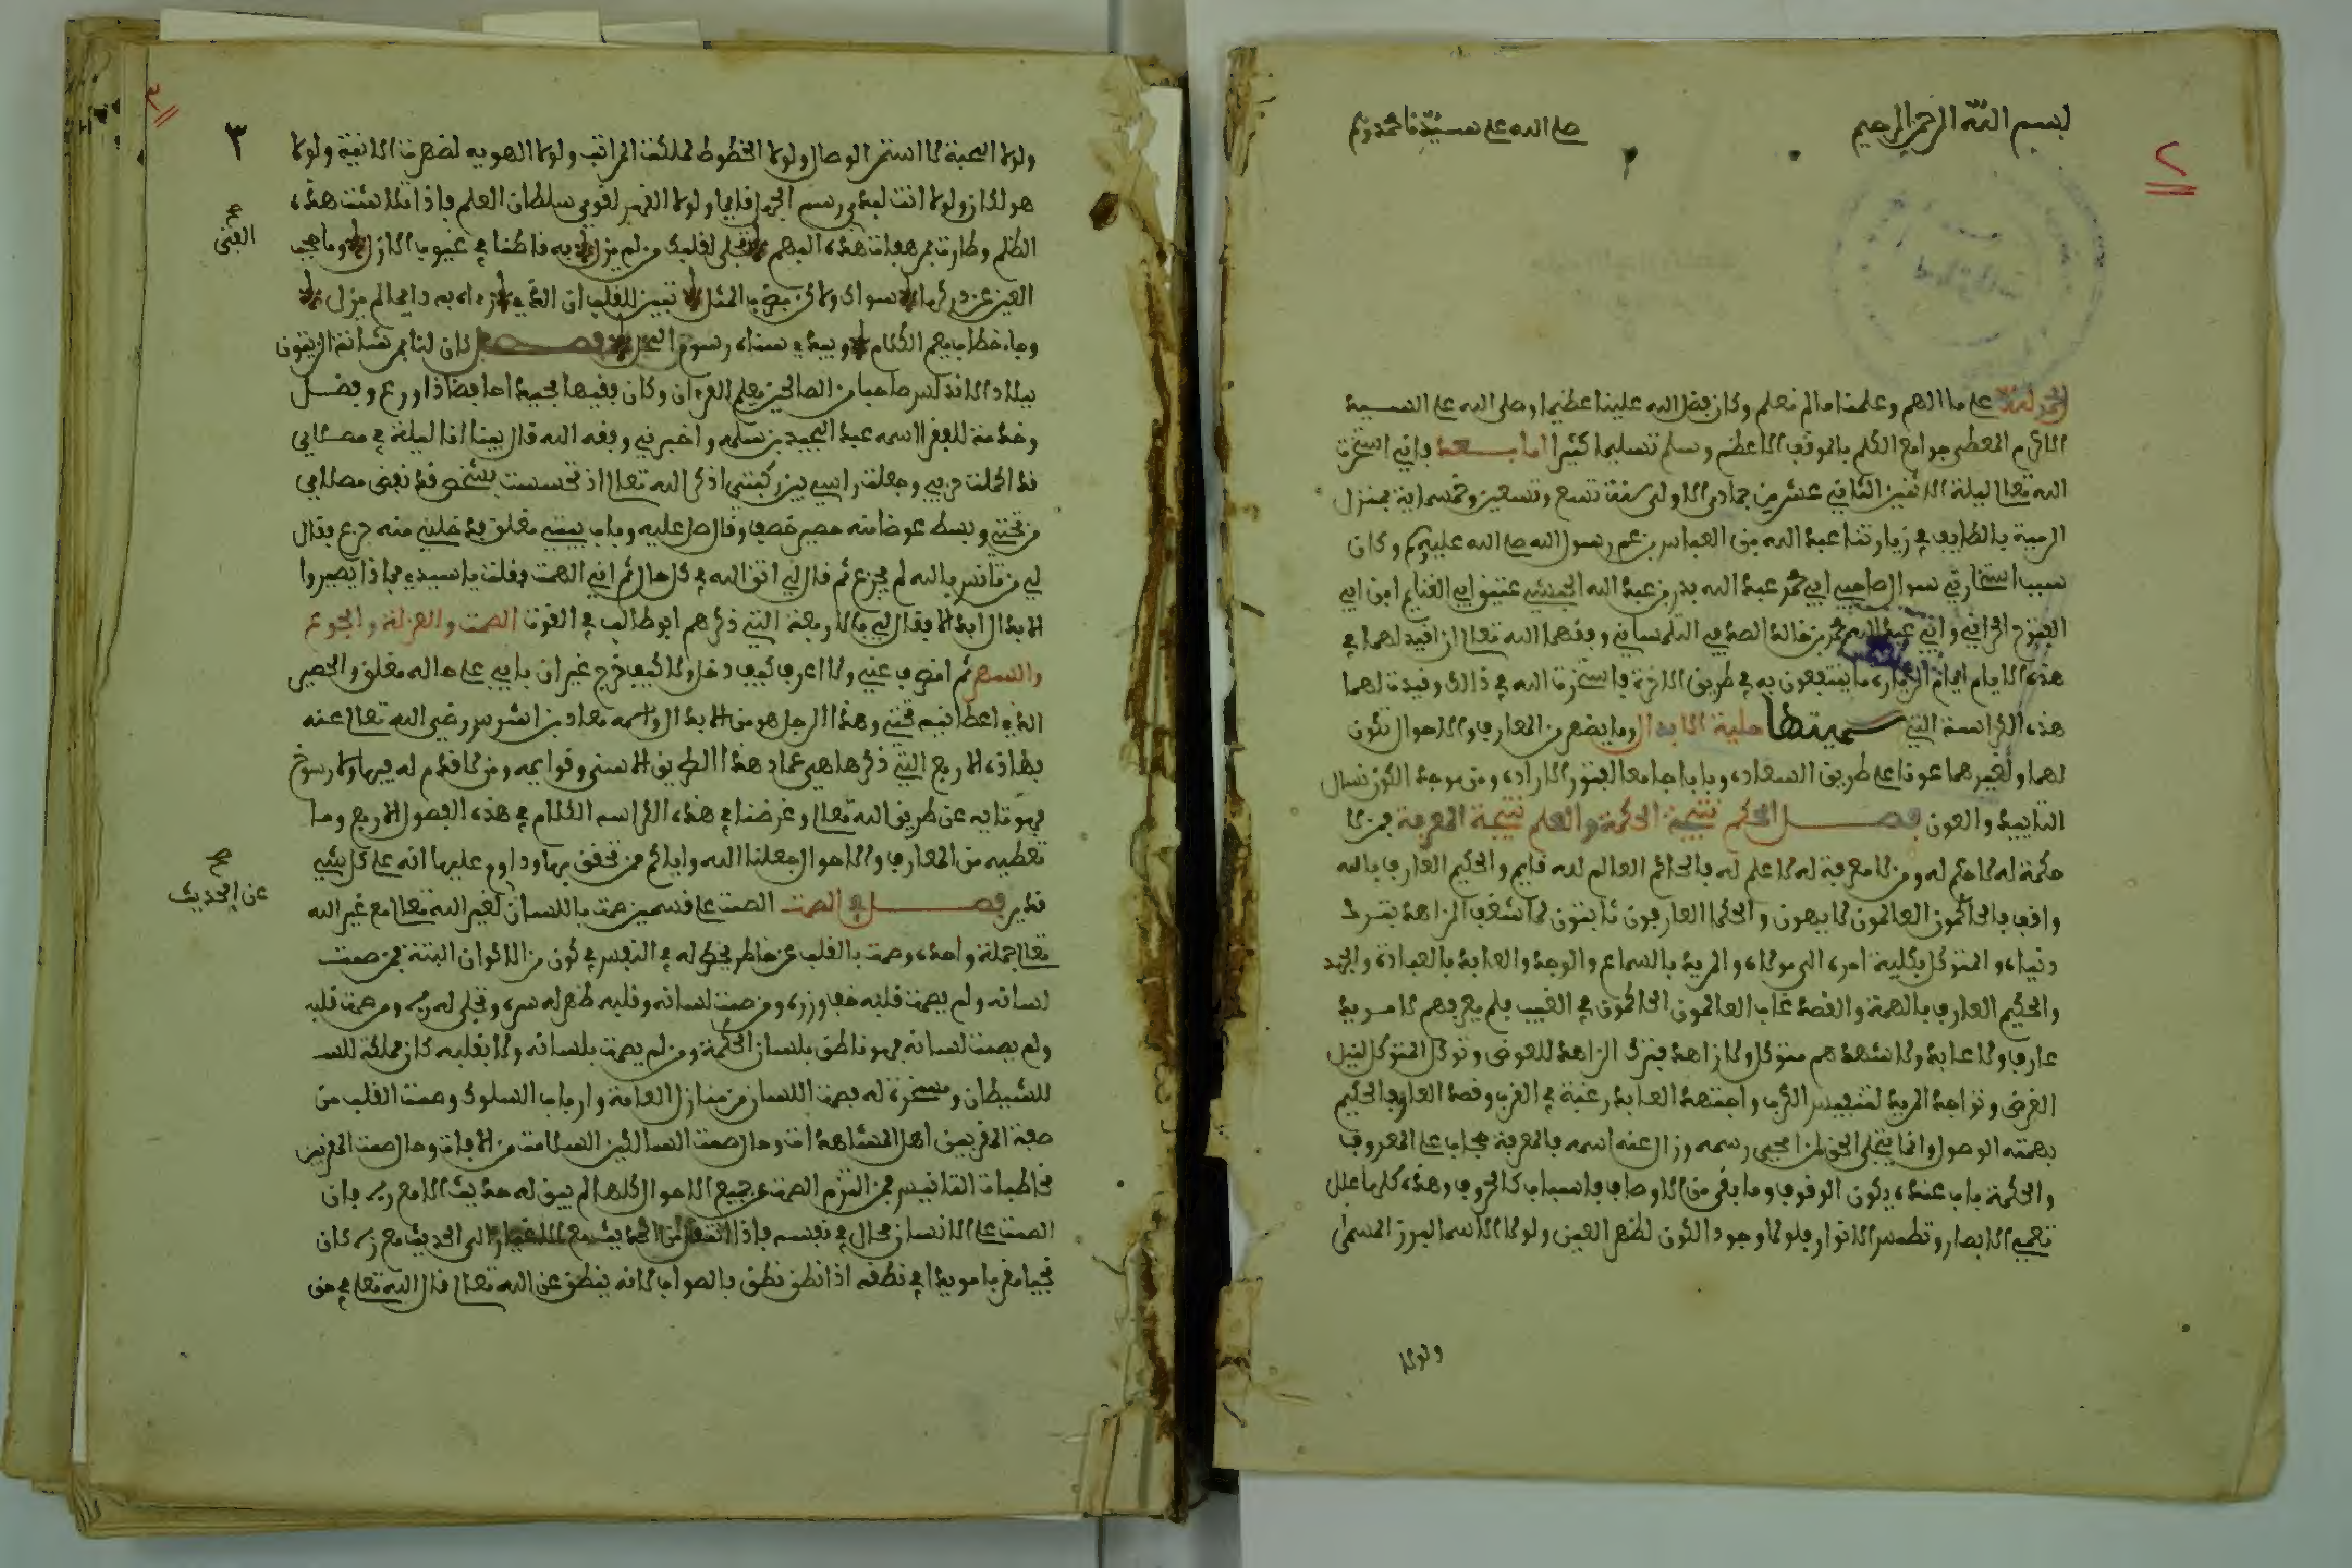 بسم الله الرحمن الرحيم
صلى الله على سيدنا محمد
٢
الحمد لله على ما الهم وعلمنا ما لم نعلم وكان فضل الله علينا عظيما وصلى الله على السيد
الاكرم المعطى جوامع الكلم بالموقف الاعظم وسلم تسليما كثيرا اما بعد فاني استخرت
الله تعالى ليلة الاثنين الثاني عشر من جمادى الاولى سنة تسع وتسعين وخمسماية بمنزل
المية بالطايف في زيارتنا عبد الله بن العباس بن عم رسول الله صلى الله عليه وكان
سبب استخارتي سوال صاحبي ابي محمد عبد الله بدر بن عبد الله الحبشي عتيق ابي الغنايم ابن ابي
الفتوح الحراني وابي عبد الله محمد بن خالد الصدفي التلمساني وفقهما الله تعالى ان اقيد لهما في
هذه الايام ايام الزيارة ما ينتفعون به في طريق الاخرة فاستخرت الله في ذالك وقيدت لهما
هذه الكراسة التي سميتها حلية الابدال وما يضهر من المعارف والاحوال تكون
لهما ولغيرهما عونا على طريق السعادة وبابا جامعا لفنون الارادة ومن موجد الكون نسال
التاييد والعون فصل الحكم نتيجة الحكمة والعلم نتيجة المعرفة فمن لا
حكمة له لا حكم له ومن لا معرفة له لا علم له فالحاكم العالم لله قايم والحكيم العارف بالله
واقف فالحاكمون العالمون لاميون والحكما العارفون بائيون لما شغف الزاهد بترك
دنياه والمتوكل بكلية امره الى مولاه والمريد بالسماع والوجد والعابد بالعبادة والجهد
والحكيم العارف بالهمة والقصد غاب العالمون الحاكمون في الغيب فلم يعرفهم لا مريد
عارف ولا عابد ولا شهدهم متوكل ولا زاهد فترك الزاهد للعوض وتوكل المتوكل لنيل
الغرض وتواجد المريد لتنفيس الكرب واجتهد العابد رغبة في القرب وقصد العارف الحكيم
بهمته الوصول وانما يتجلى الحق لمن امحى رسمه وزال عنه اسمه فالمعرفة حجاب على المعروف
والحكمة باب عنده يكون الوقوف وما بقي من الاوصاف فاسباب كالحروف وهذه كلها علل
تعمي الابصار وتطمس الانوار فلولا وجود الكون لظهر العين ولولا الاسما لبرز المسمى
ولولا
٣
٣
ولولا المحبة لما استمر الوصال ولولا الحظوظ لملكت المراتب ولولا الهويه لضهرت الانية ولولا
هو لكان ولولا انت لبدى رسم الجهل قايما ولولا الفهم لقوي سلطان العلم فاذا تلاشت هذه
الظلم وطارت بمرهفات هذه البهم تجلى لقلبك من لم يزل به قاطنا في غيوب الازل وما حجب
العين عن دركها سواك ولاكن بضرب المثل تبين للقلب ان الذي راه به دايما لم يزل
وجاء خطاب يعم الكلام ويبدي سناه رسوم المحل فصل كان لنا بمرشانة الزيتون
ببلاد الاندلس صاحبا من الصالحين يعلم القرءان وكان فقيها مجيدا حافضا ذا ورع وفضل
وخدمة للفقرا اسمه عبد المجيد بن سلمه واخبرني وفقه الله قال بينا انا ليلة في مصلاي
قد اكملت حزبي وجعلت راسي بين ركبتي اذكر الله تعالى اذ تحسست بشخص قد نفض مصلاي
من تحتي وبسط عوضا منه حصير خصف وقال صل عليه وباب بيتي مغلق فدخلني منه جزع فقال
لي من تانس بالله لم يجزع ثم قال لي اتق الله في كل حال ثم اني الهمت فقلت يا سيدي بماذا يصيروا
الابدال ابدالا فقال لي بالاربعة التي ذكرهم ابو طالب في القوت الصمت والعزلة والجوع
والسهر ثم انصرف عني ولا اعرف كيف دخل ولا كيف خرج غير ان بابي على حاله مغلق والحصير
الذي اعطانيه تحتي وهذا الرجل هو من الابدال واسمه معاذ بن اشرس رضي الله تعالى عنه
فهاذه الاربع التي ذكرها هي عماد هذا الطريق الاسنى وقوايمه ومن لا قدم له فيها ولا رسوخ
فهو تايه عن طريق الله تعالى وغرضنا في هذه الكراسه الكلام في هذه الفصول الاربع وما
تعطيه من المعارف والاحوال جعلنا الله واياكم ممن تحقق بها وداوم عليها انه على كل شي
قدير فصل في الصمت الصمت على قسمين صمت باللسان لغير الله تعالى مع غير الله
تعالى جملة واحدة وصمت بالقلب عن خاطر يخطر له في النفس في كون من الاكوان البتة فمن صمت
لسانه ولم يصمت قلبه خف وزره ومن صمت لسانه وقلبه ظهر له سره وتجلى له ربه ومن صمت قلبه
ولم يصمت لسانه فهو ناطق بلسان الحكمة ومن لم يصمت بلسانه ولا بقلبه كان مملكة للسـ
للشيطان ومسخرة له فصمت اللسان من منازل العامة وارباب السلوك وصمت القلب من
صفة المقربين اهل المشاهدات وحال صمت السالكين السلامة من الافات وحال صمت المقربين
مخاطبات التانيس فمن التزم الصمت في جميع الاحوال كلها لم يبق له حديث الا مع ربه فان
الصمت على الانسان محال في نفسه فاذا انتقل من الحديث مع الاغيار الى الحديث مع ربه كان
نجيا مقربا مويدا في نطقه اذا نطق نطق بالصواب لانه ينطق عن الله تعالى قال الله تعالى في حق
صح
العين
صح
عن الحديث